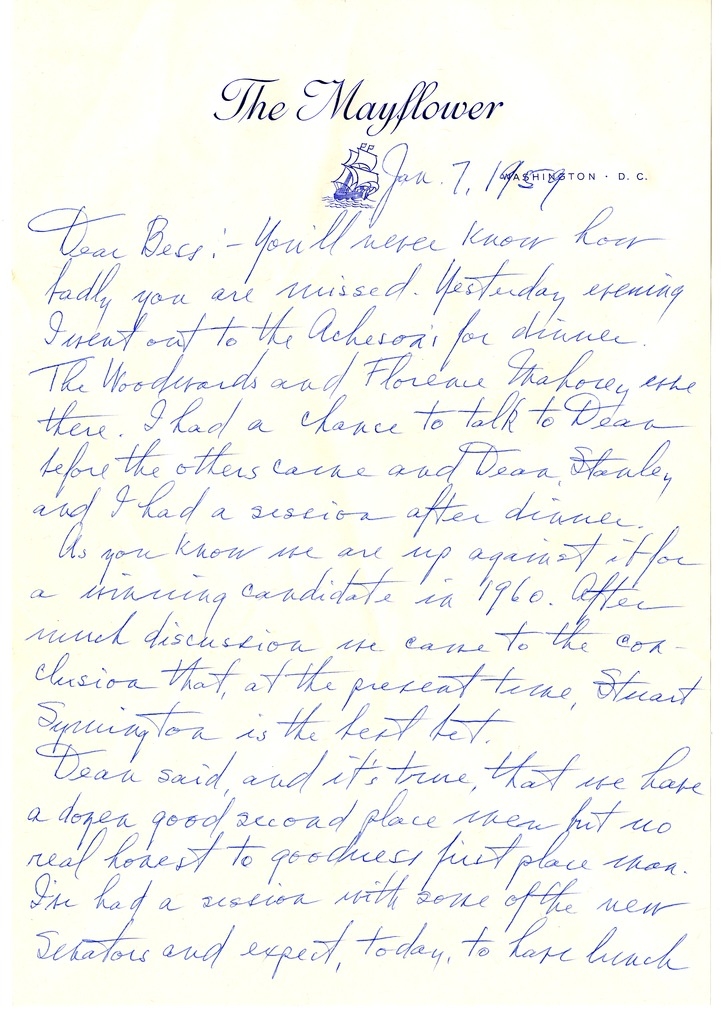 The Mayflower
Jan. 7, 1959
WASHINGTON · D. C.
Dear Bess:- You'll never know how
badly you are missed. Yesterday evening
I went out to the Acheson's for dinner.
The Woodwards and Florence Mahoney were
there. I had a chance to talk to Dean
before the others came and Dean, Stanley
and I had a session after dinner.
As you know we are up against it for
a winning candidate in 1960. After
much discussion we came to the con-
clusion that, at the present time, Stuart
Symington is the best bet.
Dean said, and it's true, that we have
a dozen good second place men but no
real honest to goodness first place man.
I've had a session with some of the new
Senators and expect, today, to have lunch